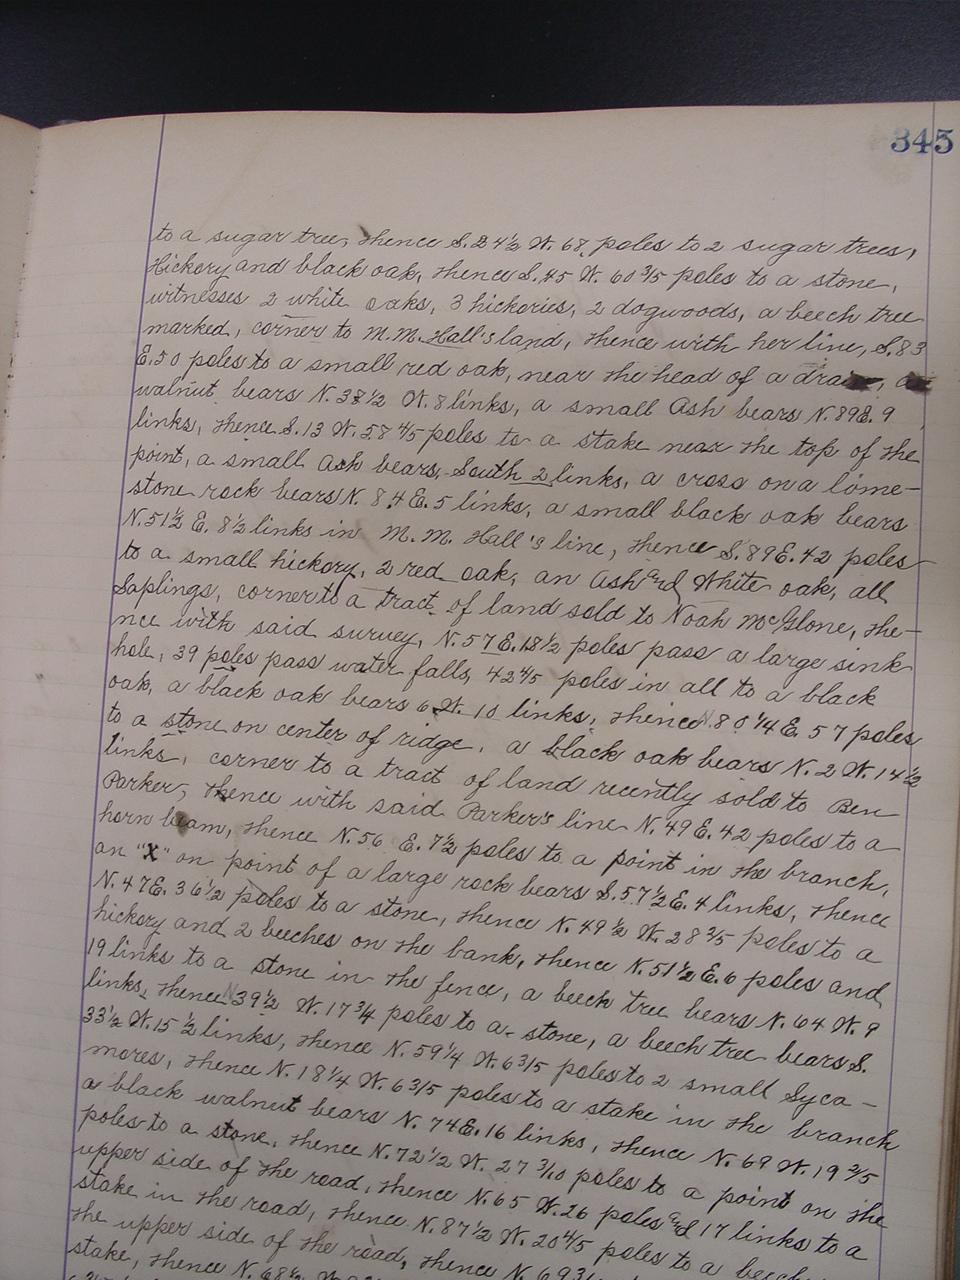 345
to a sugar tree, thence S. 24½ W. 68 poles to 2 sugar trees,
Hickory and black oak, thence S. 45 W. 60 3/5 poles to a stone,
witnesses 2 white oaks, 3 hickories, 2 dogwoods, a beech tree
marked, corner to M. M. Hall's land, thence with her line, S. 83
E. 50 poles to a small red oak, near the head of a drain, a
walnut bears N. 38½ W. 8 links, a small Ash bears N. 89 E. 9
links, thence S. 13 W. 58 4/5 poles to a stake near the top of the
point, a small Ash bears South 2 links, a cross on a lime-
stone rock bears N. 84 E. 5 links, a small black oak bears
N. 51½ E. 8½ links in M. M. Hall's line, thence S. 89 E. 42 poles
to a small hickory, 2 red oak, an Ash and White oak, all
Saplings, corner to a tract of land sold to Noah McGlone, the-
nce with said survey, N. 57 E. 18½ poles pass a large sink
hole, 39 poles pass water falls, 42 4/5 poles in all to a black
oak, a black oak bears 6 W. 10 links, thence N. 80¼ E. 57 poles
to a stone on center of ridge, a black oak bears N. 2 W. 14½
links, corner to a tract of land recently sold to Ben
Parker, thence with said Parker's line N. 49 E. 42 poles to a
horn beam, thence N. 56 E. 7½ poles to a point in the branch,
an "X" on point of a large rock bears S. 57½ E. 4 links, thence
N. 47 E. 36½ poles to a stone, thence N. 49½ W. 28 3/5 poles to a
hickory and 2 beeches on the bank, thence N. 51½ E. 6 poles and
19 links to a stone in the fence, a beech tree bears N. 64 W. 9
links, thence N 39½ W. 17¾ poles to a stone, a beech tree bears S.
33½ W. 15½ links, thence N. 59¼ W. 6 3/5 poles to 2 small Syca-
mores, thence N. 18¼ W. 6 3/5 poles to a stake in the branch
a black walnut bears N. 74 E. 16 links, thence N. 69 W. 19 2/5
poles to a stone, thence N. 72½ W. 27 3/10 poles to a point on the
upper side of the road, thence N. 65 W. 26 poles and 17 links to a
stake in the road, thence N. 87½ W. 20 4/5 poles to a beech
the upper side of the road, thence N. 69
stake, thence N. 68½ W.